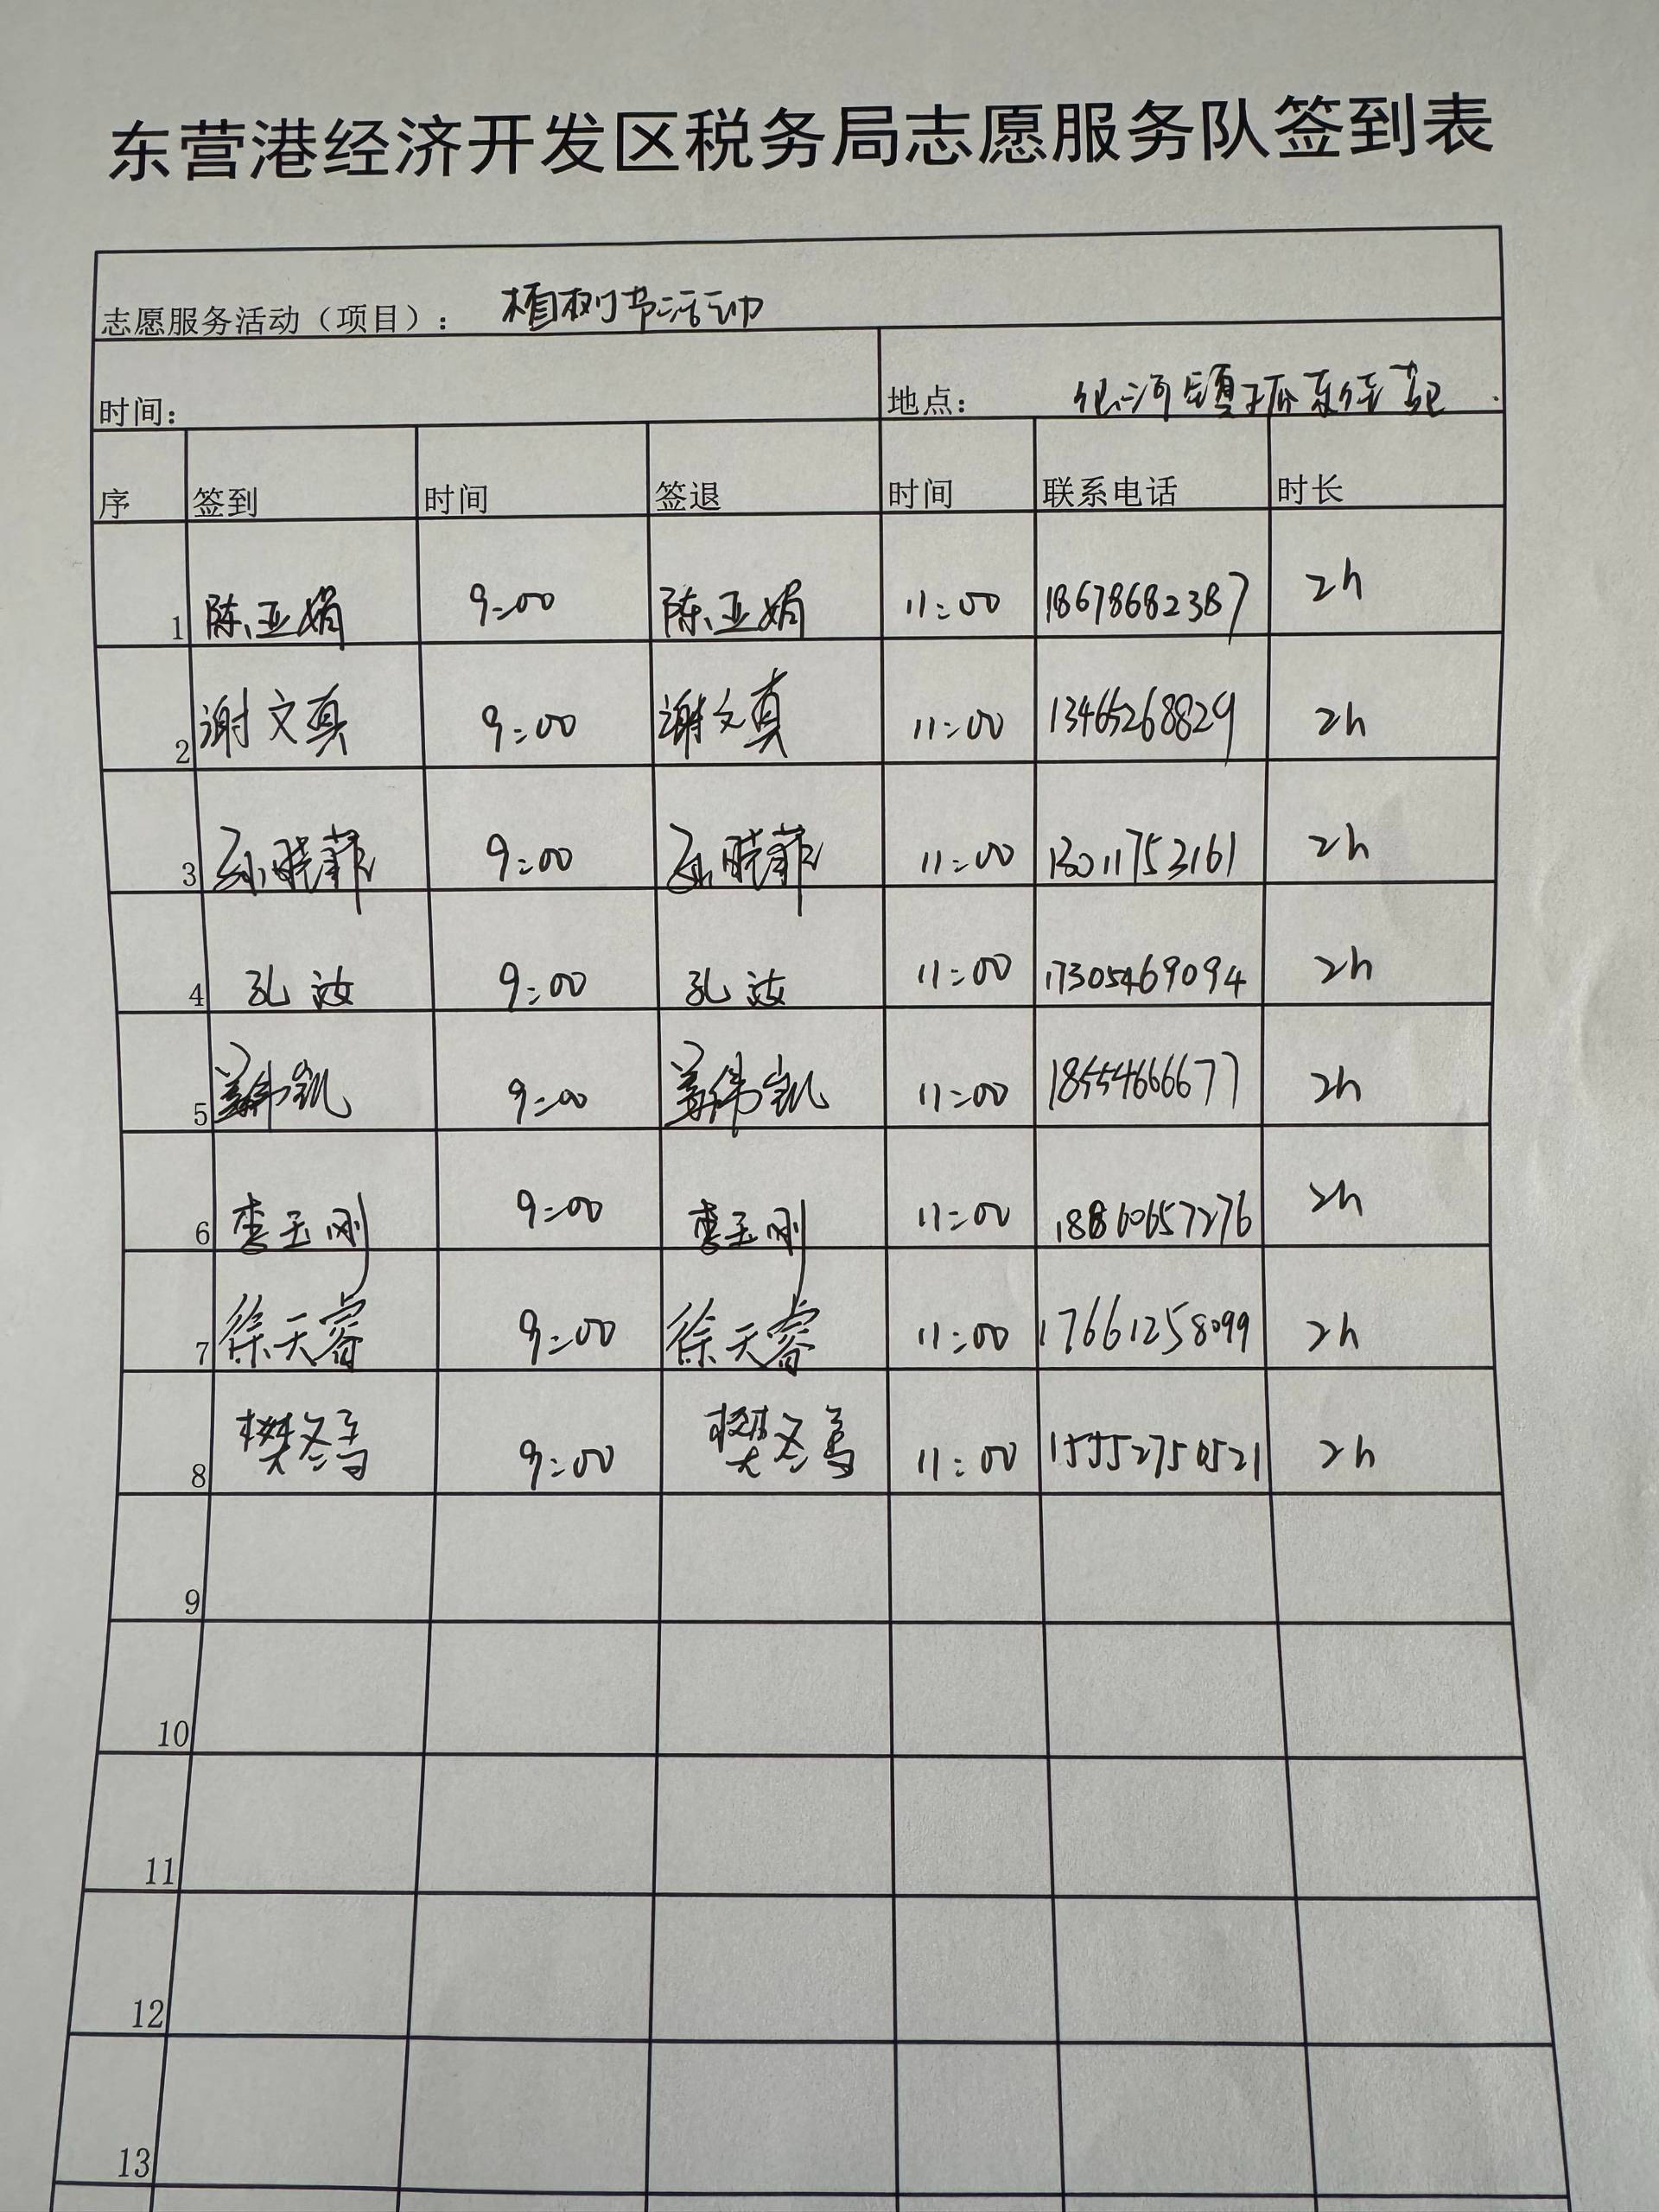 东营港经济开发区税务局志愿服务队签到表
志愿服务活动（项目）： 植树节活动
时间： 地点： 仙河镇孤东
序 签到 时间 签退 时间 联系电话 时长
1 陈亚娟 9:00 陈亚娟 11:00 18678682387 2h
2 谢文真 9:00 谢文真 11:00 13465268829 2h
3 孙晓菲 9:00 孙晓菲 11:00 13011753161 2h
4 孔汝 9:00 孔汝 11:00 17305469094 2h
5 姜伟凯 9:00 姜伟凯 11:00 18554666677 2h
6 李玉刚 9:00 李玉刚 11:00 18860657276 2h
7 徐天睿 9:00 徐天睿 11:00 17661258099 2h
8 樊冬 9:00 樊冬 11:00 15552750521 2h
9
10
11
12
13